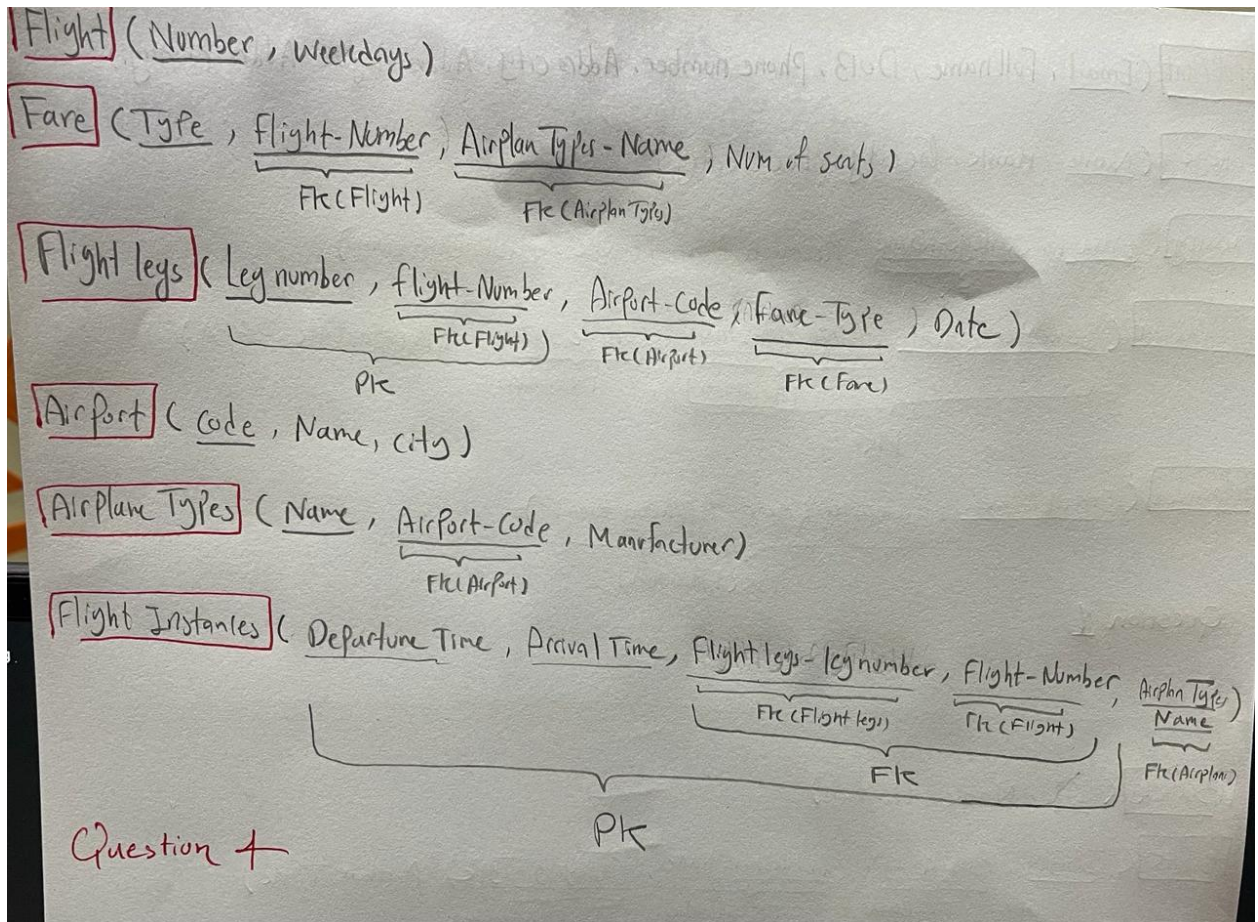 Flight ( Number , Weekdays )
Fare ( Type , flight-Number , Airplan Types - Name , Num of seats )
Fk (Flight) Fk (Airplan Types)
Flight legs ( Leg number , flight-Number , Airport-Code , Fare-Type , Date )
Fk (Flight) Fk (Airport) Fk (Fare)
Pk
Airport ( Code , Name , city )
Airplane Types ( Name , Airport-Code , Manufacturer )
Fk (Airport)
Flight Instances ( Departure Time , Arrival Time , Flight legs - leg number , Flight-Number , Airplan Types )
Name
Fk (Flight legs) Fk (Flight) Fk (Airplane)
Fk
Pk
Question 4